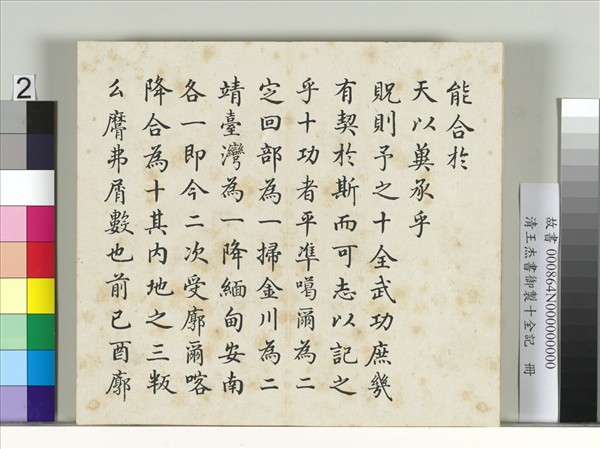 能合於
天以奠承乎
貺則予之十全武功庶幾
有契於斯而可志以記之
乎十功者平準噶爾為二
定回部為一掃金川為二
靖臺灣為一降緬甸安南
各一即今二次受廓爾喀
降合為十其內地之三叛
么麿弗屑數也前己酉廓
2
故書 000864N000000000
清王杰書御製十全記 冊